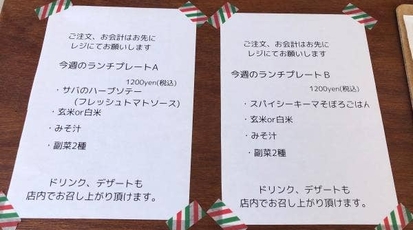 ご注文、お会計はお先に
レジにてお願いします
今週のランチプレートA
1200yen(税込)
・サバのハーブソテー
(フレッシュトマトソース)
・玄米or白米
・みそ汁
・副菜2種
ドリンク、デザートも
店内でお召し上がり頂けます。
ご注文、お会計はお先に
レジにてお願いします
今週のランチプレートB
1200yen(税込)
・スパイシーキーマそぼろごはん
・玄米or白米
・みそ汁
・副菜2種
ドリンク、デザートも
店内でお召し上がり頂けます。